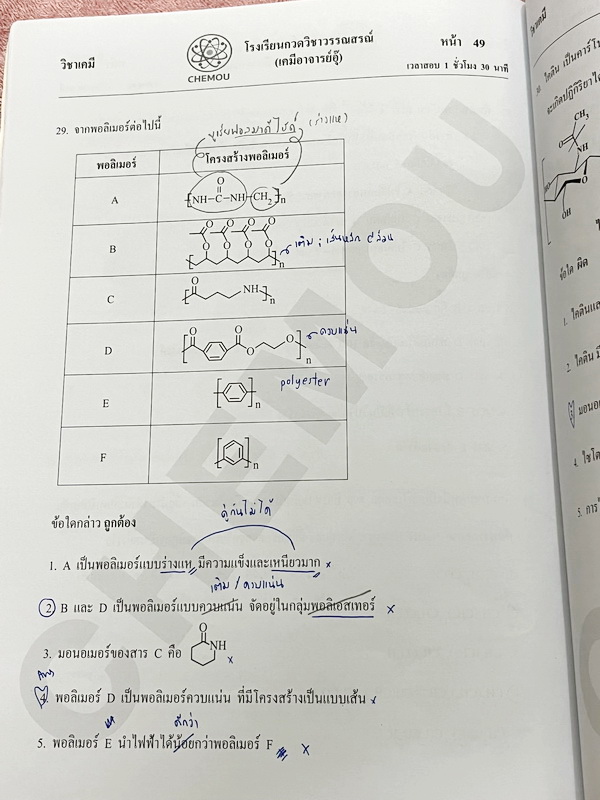 วิชาเคมี
CHEMOU
โรงเรียนกวดวิชาวรรณสรณ์
(เคมีอาจารย์อุ๊)
หน้า 49
เวลาสอบ 1 ชั่วโมง 30 นาที
29. จากพอลิเมอร์ต่อไปนี้
(ร่างแห)
พอลิเมอร์ โครงสร้างพอลิเมอร์
A
O
NH C NH CH2 n
B
O O O O
O O O O
n
เติม ;
C
O NH n
D
O O O O n
ควบแน่น
E
n
polyester
F
n
ข้อใดกล่าว ถูกต้อง
คู่กันไม่ได้
1. A เป็นพอลิเมอร์แบบร่างแห มีความแข็งและเหนียวมาก ×
เติม / ควบแน่น
2. B และ D เป็นพอลิเมอร์แบบควบแน่น จัดอยู่ในกลุ่มพอลิเอสเทอร์ ×
3. มอนอเมอร์ของสาร C คือ O NH ×
Ans
4. พอลิเมอร์ D เป็นพอลิเมอร์ควบแน่น ที่มีโครงสร้างเป็นแบบเส้น
ดีกว่า
5. พอลิเมอร์ E นำไฟฟ้าได้น้อยกว่าพอลิเมอร์ F ×
CHEMOU
วิชาเคมี
30. ไคติน เป็นคาร์โบ
จะเกิดปฏิกิริยา
CH3
O
NH
O
OH
ข้อใด ผิด
1. ไคตินและ
2. ไคติน มี
3. มอนอ
4. ไคโต
5. การ